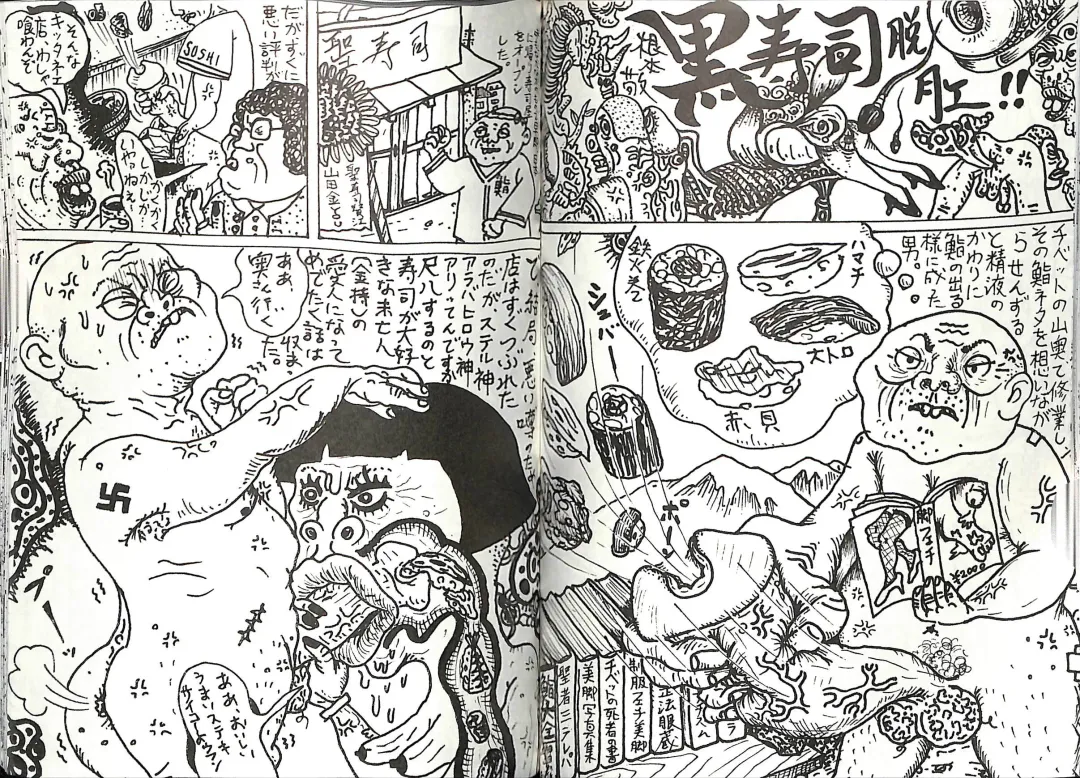 黒寿司脱肛!!
根本敬
チベットの山奥で修業し
その鮨ネタを想いなが
らせんずる
と精液の
かわりに
鮨の出る
様に成った
男。
ハマチ
鉄火巻
大トロ
赤貝
シュバー
ポーン
脚フェチ
¥2000
正法眼蔵
チベットの死者の書
美脚写真集
聖者ミラレパ
寿司
をオープン
した。
聖寿司
鮨
山田金吾
だがすぐに
悪い評判が
SUSHI
そんな
キッタネェ
店、わしゃ
喰わんぞ
いやね
店はすぐつぶれた
のだが、ステル神
アラバヒロウ神
アリってんです
尺八するのと
寿司が大好
きな未亡人
(金持)の
愛人になって
めでたく話は
収ま
った。
ああ、
奥さん行く
ああ、おいしい
うまい、ステキ
サイコーよう